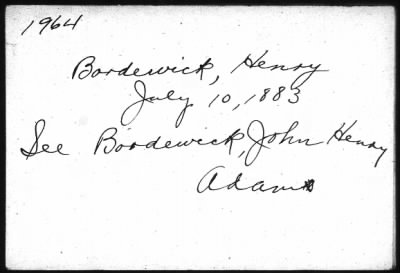 1964
Bordewick, Henry
July 10, 1883
See Bordewick, John Henry
Adam